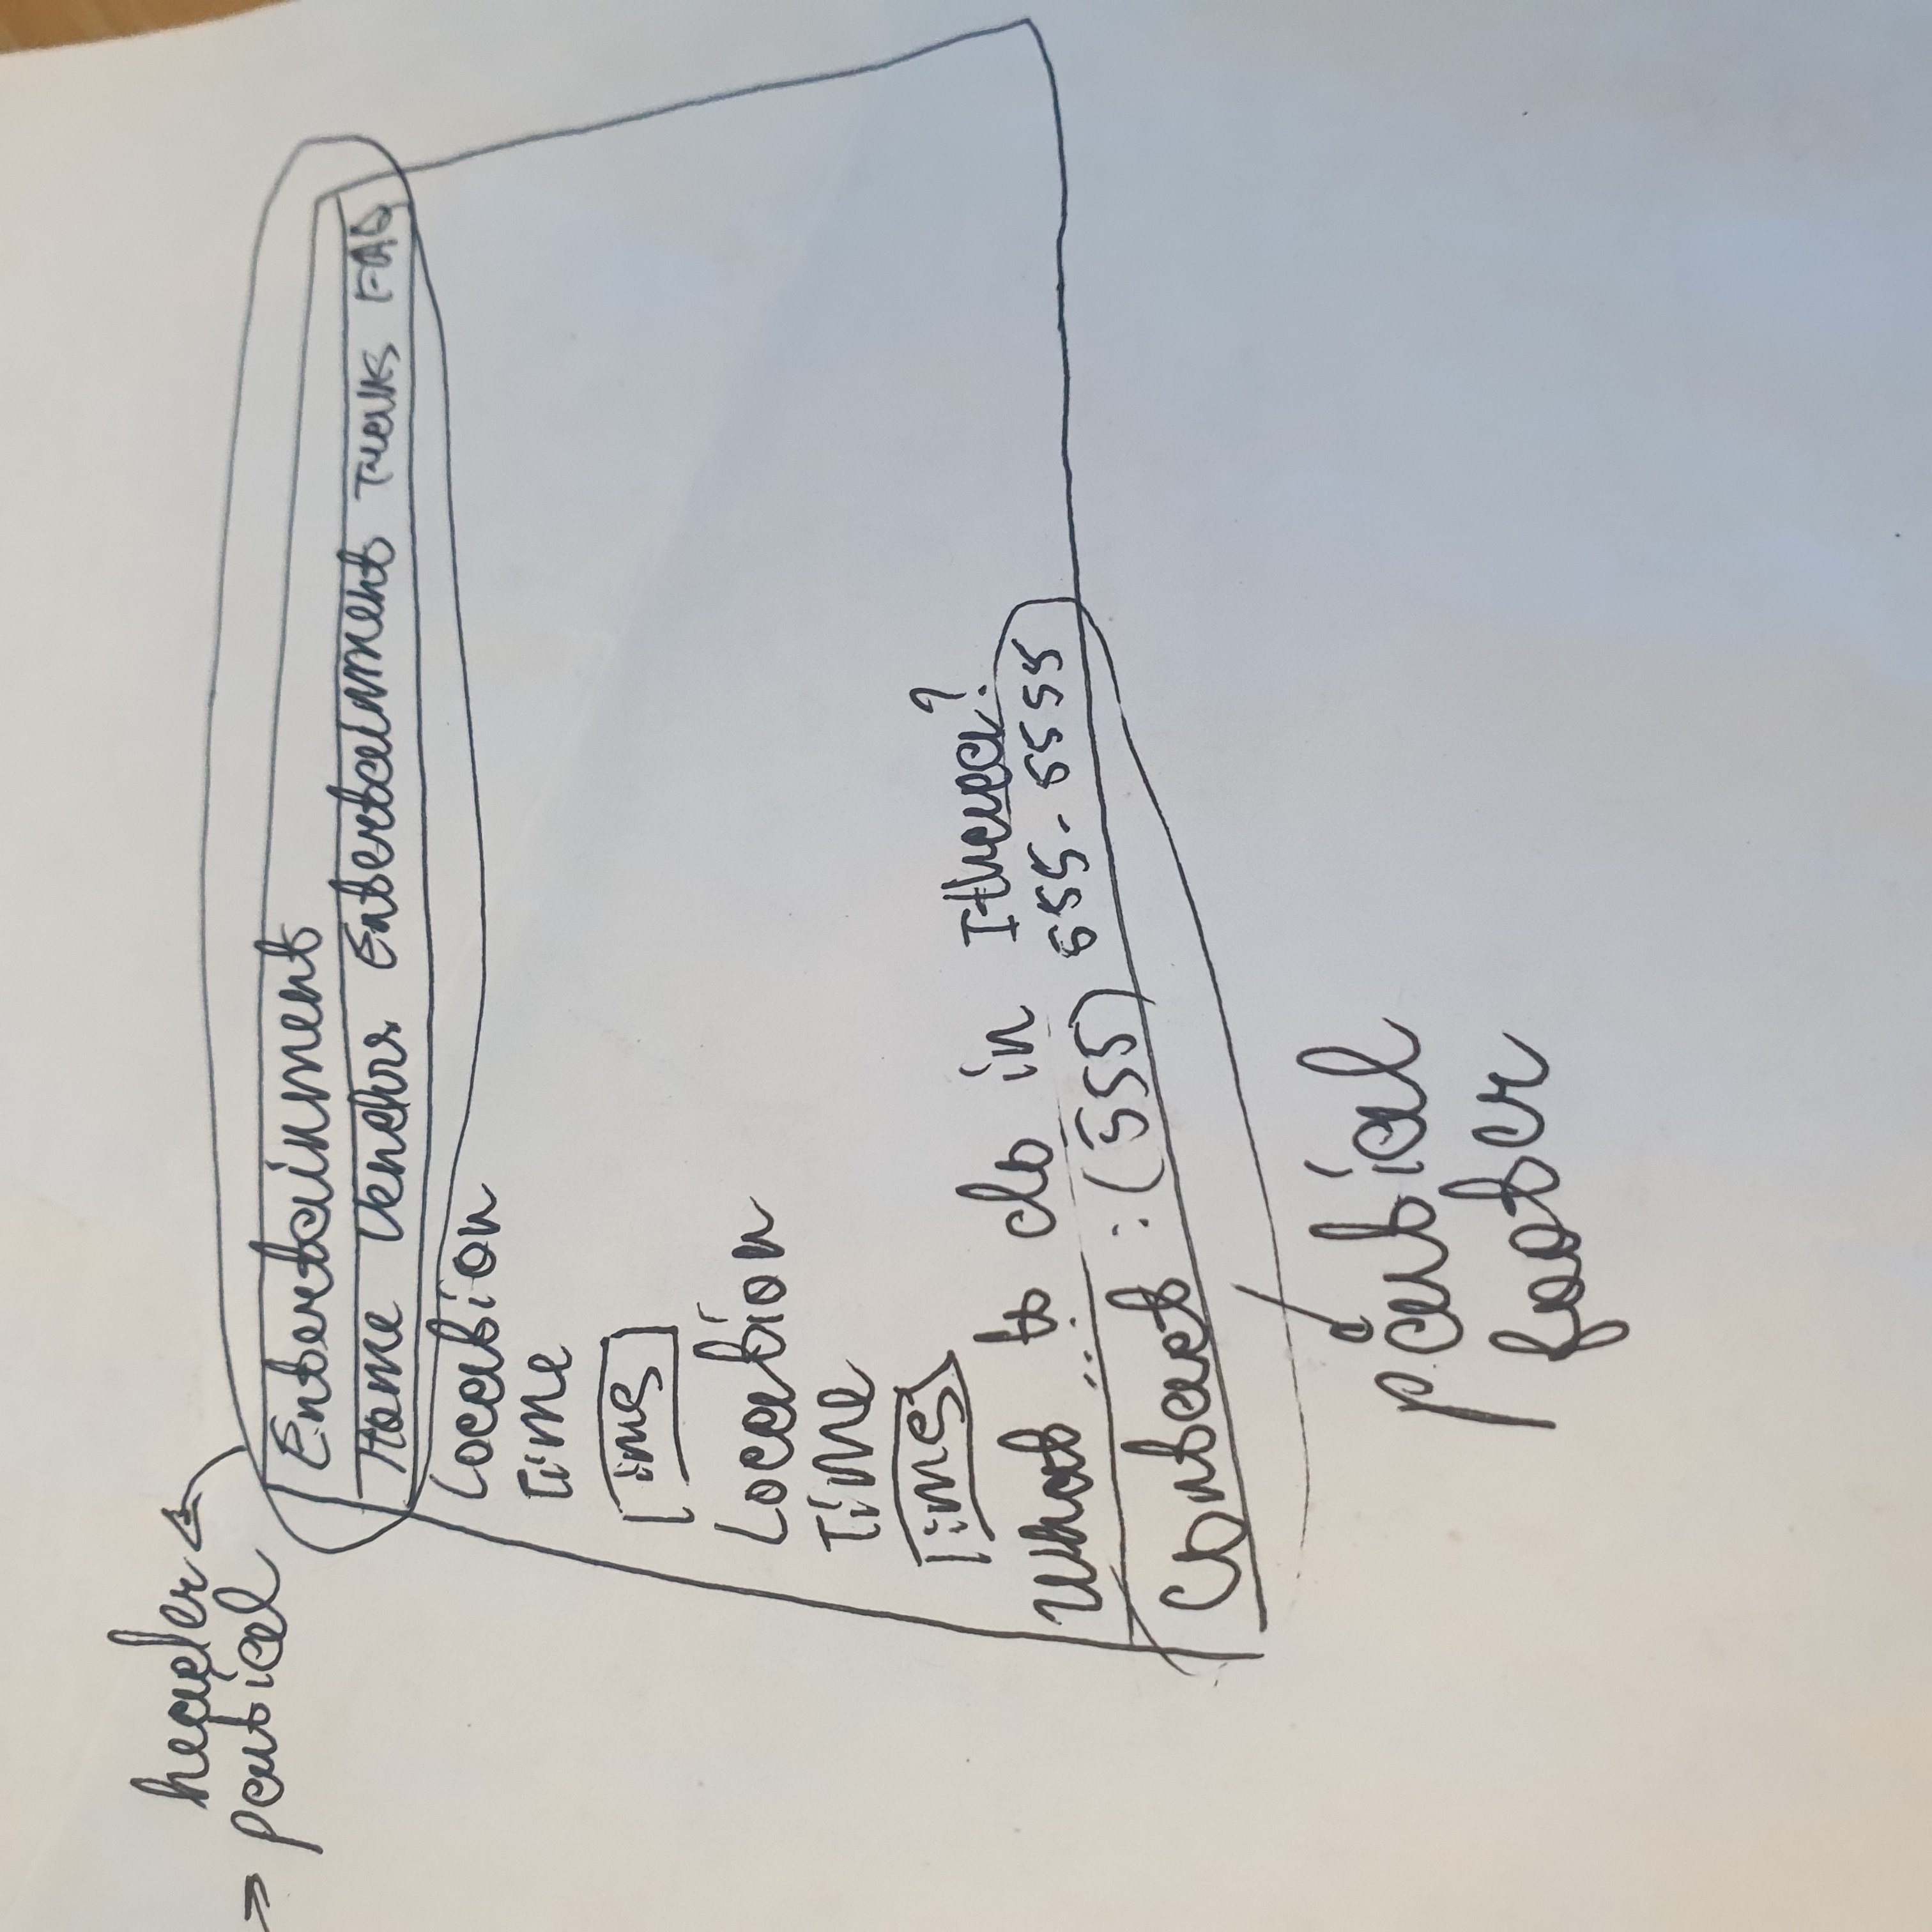 header
partial
Entertainment
Home Vendors Entertainment FAQ
Location
Time
img
Location
Time
img
What to do in Ithaca?
...
Contact : (555) 555-5555
partial
footer